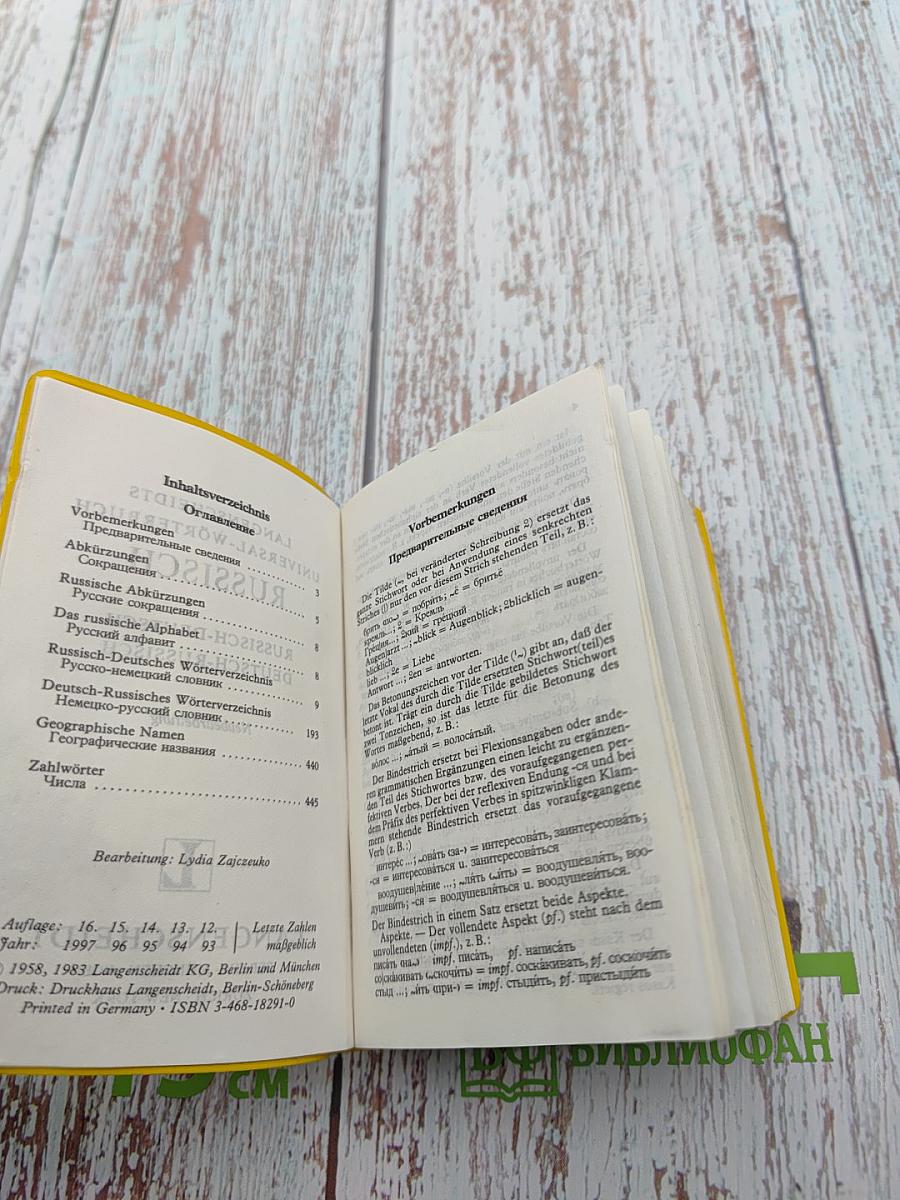 Inhaltsverzeichnis
Оглавление
Vorbemerkungen
Предварительные сведения ........ 3
Abkürzungen
Сокращения ........ 5
Russische Abkürzungen
Русские сокращения ........ 8
Das russische Alphabet
Русский алфавит ........ 8
Russisch-Deutsches Wörterverzeichnis
Русско-немецкий словник ........ 9
Deutsch-Russisches Wörterverzeichnis
Немецко-русский словник ........ 193
Geographische Namen
Географические названия ........ 440
Zahlwörter
Числа ........ 445
Bearbeitung: Lydia Zajczeuko
Auflage: 16. 15. 14. 13. 12. | Letzte Zahlen
Jahr: 1997 96 95 94 93 | maßgeblich
© 1958, 1983 Langenscheidt KG, Berlin und München
Druck: Druckhaus Langenscheidt, Berlin-Schöneberg
Printed in Germany · ISBN 3-468-18291-0
Vorbemerkungen
Предварительные сведения
Die Tilde (~, bei veränderter Schreibung 2) ersetzt das
ganze Stichwort oder bei Anwendung eines senkrechten
Striches (|) nur den vor diesem Strich stehenden Teil, z. B.:
брить ‹по-› = побрить; ~ё = бритьё
кремль...; 2 = Кремль
Греция...; 2кий = грецкий
Augen|arzt ...; ~blick = Augenblick; 2blicklich = augen-
blicklich
lieb ...; 2e = Liebe
Antwort ...; 2en = antworten.
Das Betonungszeichen vor der Tilde (ˈ~) gibt an, daß der
letzte Vokal des durch die Tilde ersetzten Stichwort(teil)es
betont ist. Trägt ein durch die Tilde gebildetes Stichwort
zwei Tonzeichen, so ist das letzte für die Betonung des
Wortes maßgebend, z. B.:
во́лос ...; ~а́тый = волоса́тый.
Der Bindestrich ersetzt bei Flexionsangaben oder ande-
ren grammatischen Ergänzungen einen leicht zu ergänzen-
den Teil des Stichwortes bzw. des voraufgegangenen per-
fektiven Verbes. Der bei der reflexiven Endung -ся und bei
dem Präfix des perfektiven Verbes in spitzwinkligen Klam-
mern stehende Bindestrich ersetzt das voraufgegangene
Verb (z. B.:)
интере́с ...; ~ова́ть ‹за-› = интересова́ть, заинтересова́ть;
-ся = интересова́ться u. заинтересова́ться
воодушев|ле́ние ...; ~ля́ть ‹~и́ть› = воодушевля́ть, воо-
душеви́ть; -ся = воодушевля́ться u. воодушеви́ться.
Der Bindestrich in einem Satz ersetzt beide Aspekte.
Aspekte. — Der vollendete Aspekt (pf.) steht nach dem
unvollendeten (impf.), z. B.:
писа́ть ‹на-› impf. писа́ть, pf. написа́ть
со|ска́кивать ‹~скочи́ть› = impf. соска́кивать, pf. соскочи́ть
стыд ...; ~и́ть ‹при-› = impf. стыди́ть, pf. пристыди́ть
15 см
БФ БИБЛИОФАН